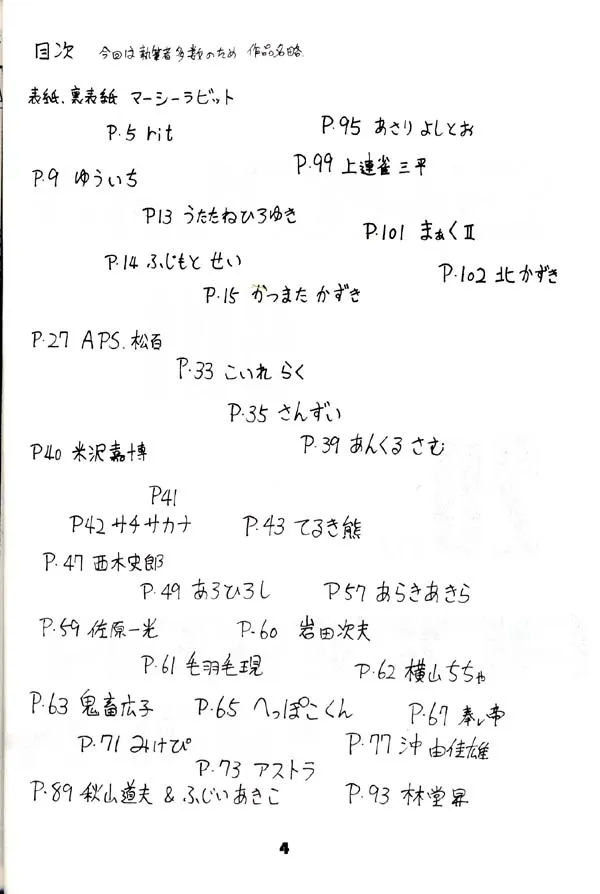 目次 今回は執筆者多数のため 作品名略
表紙、裏表紙 マーシーラビット
P.5 rit
P.95 あさりよしとお
P.99 上連雀三平
P.9 ゆういち
P13 うたたねひろゆき
P.101 まぁくⅡ
P.14 ふじもと せい
P.102 北かずき
P.15 がつまた かずき
P.27 APS.松百
P.33 こいれ らく
P.35 さんずい
P.39 あんくる さむ
P40 米沢嘉博
P41
P42 サチサカナ
P.43 てるき熊
P.47 西木史郎
P.49 あろひろし
P57 あらきあきら
P.59 佐原一光
P.60 岩田次夫
P.61 毛羽毛現
P.62 横山ちちゃ
P.63 鬼畜広子
P.65 へっぽこくん
P.67
P.71 みけぴ
P.77 沖由佳雄
P.73 アストラ
P.89 秋山道夫 & ふじいあきこ
P.93 林堂昇
4